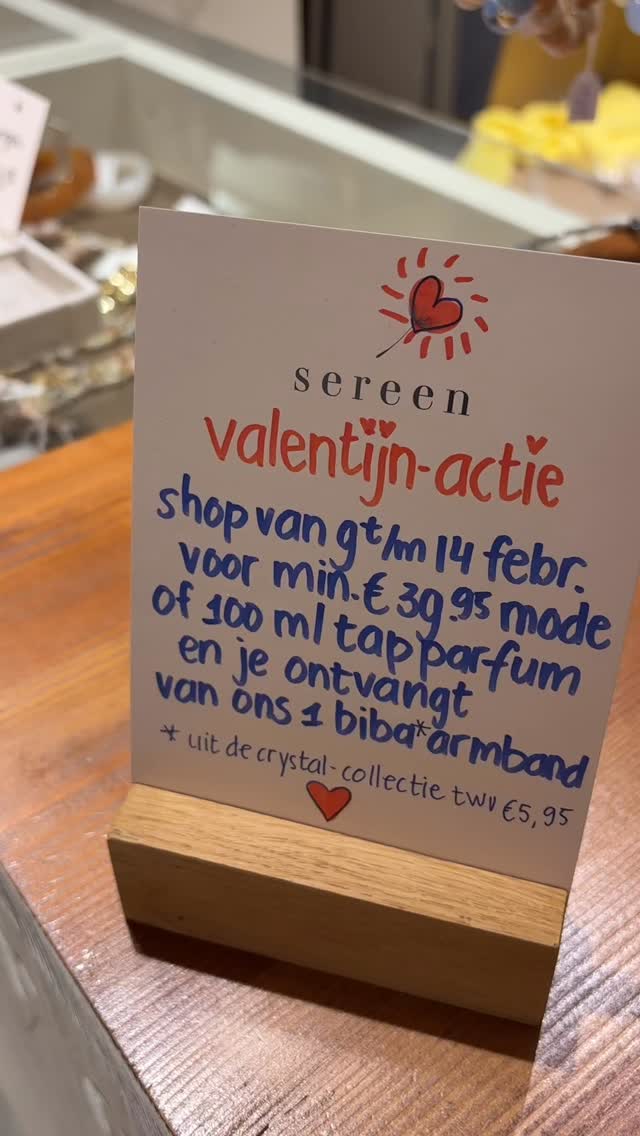 sereen
valentijn-actie
shop van 9 t/m 14 febr.
voor min. € 39.95 mode
of 100 ml tap parfum
en je ontvangt
van ons 1 biba* armband
* uit de crystal-collectie twv €5,95